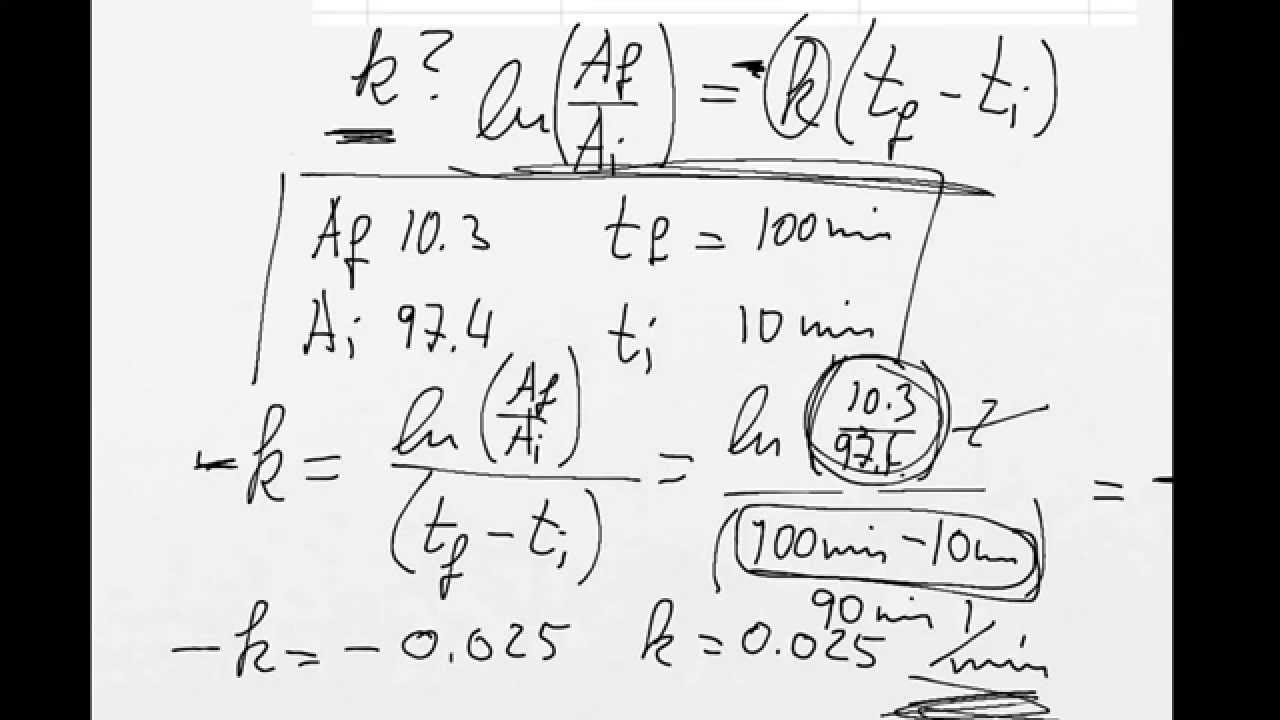 k? ln(Af/Ai) = -k(tf - ti)
Af 10.3 tf = 100min
Ai 97.4 ti 10 min
-k = ln(Af/Ai)/(tf - ti) = ln(10.3/97.4)/(100min - 10min) = -
90min
-k = - 0.025 k = 0.025 1/min